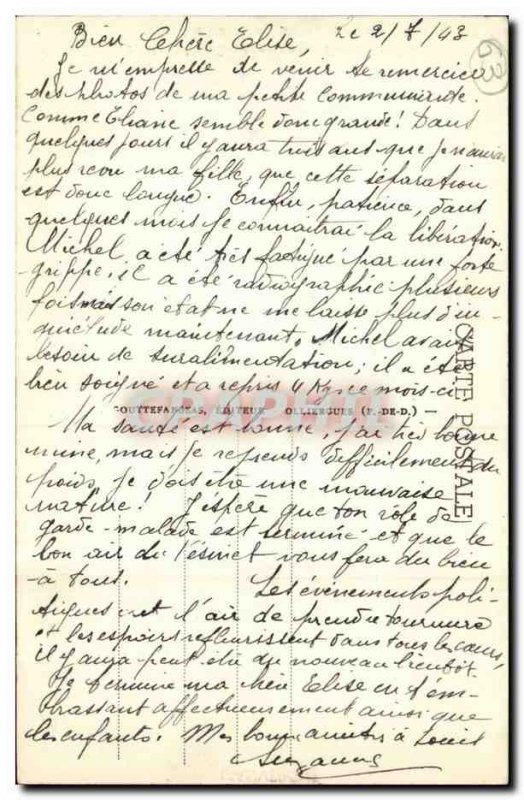 Bien Chère Elise, Le 2/7/43
63
Je m'empresse de venir te remercier
des photos de ma petite communiante.
Comme Eliane semble donc grande! Dans
quelques jours il y aura trois ans que je n'aurai
plus revu ma fille, que cette séparation
est donc longue. Enfin, patience, dans
quelques mois je connaîtrai la libération.
Michel a été très fatigué par une forte
grippe, il a été radiographié plusieurs
fois mais son état ne me laisse plus d'in-
quiétude maintenant. Michel avait
besoin de suralimentation; il a été
bien soigné et a repris 4 Kgs ce mois-ci
GOUTTEFANGEAS, ÉDITEUR OLLIERGUES (P.-DE-D.) —
CARTE POSTALE
Ma santé est bonne, j'ai très bonne
mine, mais je reprends difficilement du
poids, je dois être une mauvaise
nature! J'espère que ton rôle de
garde-malade est terminé et que le
bon air du vous fera du bien
à tous. Les événements poli-
tiques ont l'air de prendre tournure
et les espoirs refleurissent dans tous les cœurs,
il y aura peut être du nouveau bientôt.
Je termine ma bien Elise en t'em-
brassant affectueusement ainsi que
les enfants. Mes bonnes amitiés à Louis
Suzanne